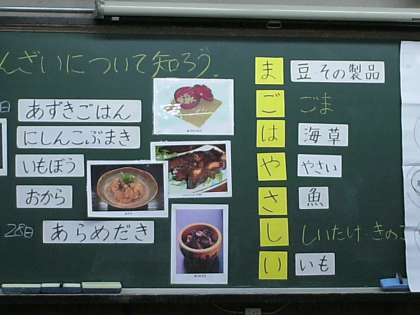 んざいについて知ろう
日 あずきごはん
にしんこぶまき
いもぼう
おから
28日 あらめだき
ま 豆 その製品
ご ごま
は 海草
や やさい
さ 魚
し しいたけ きのこ
い いも